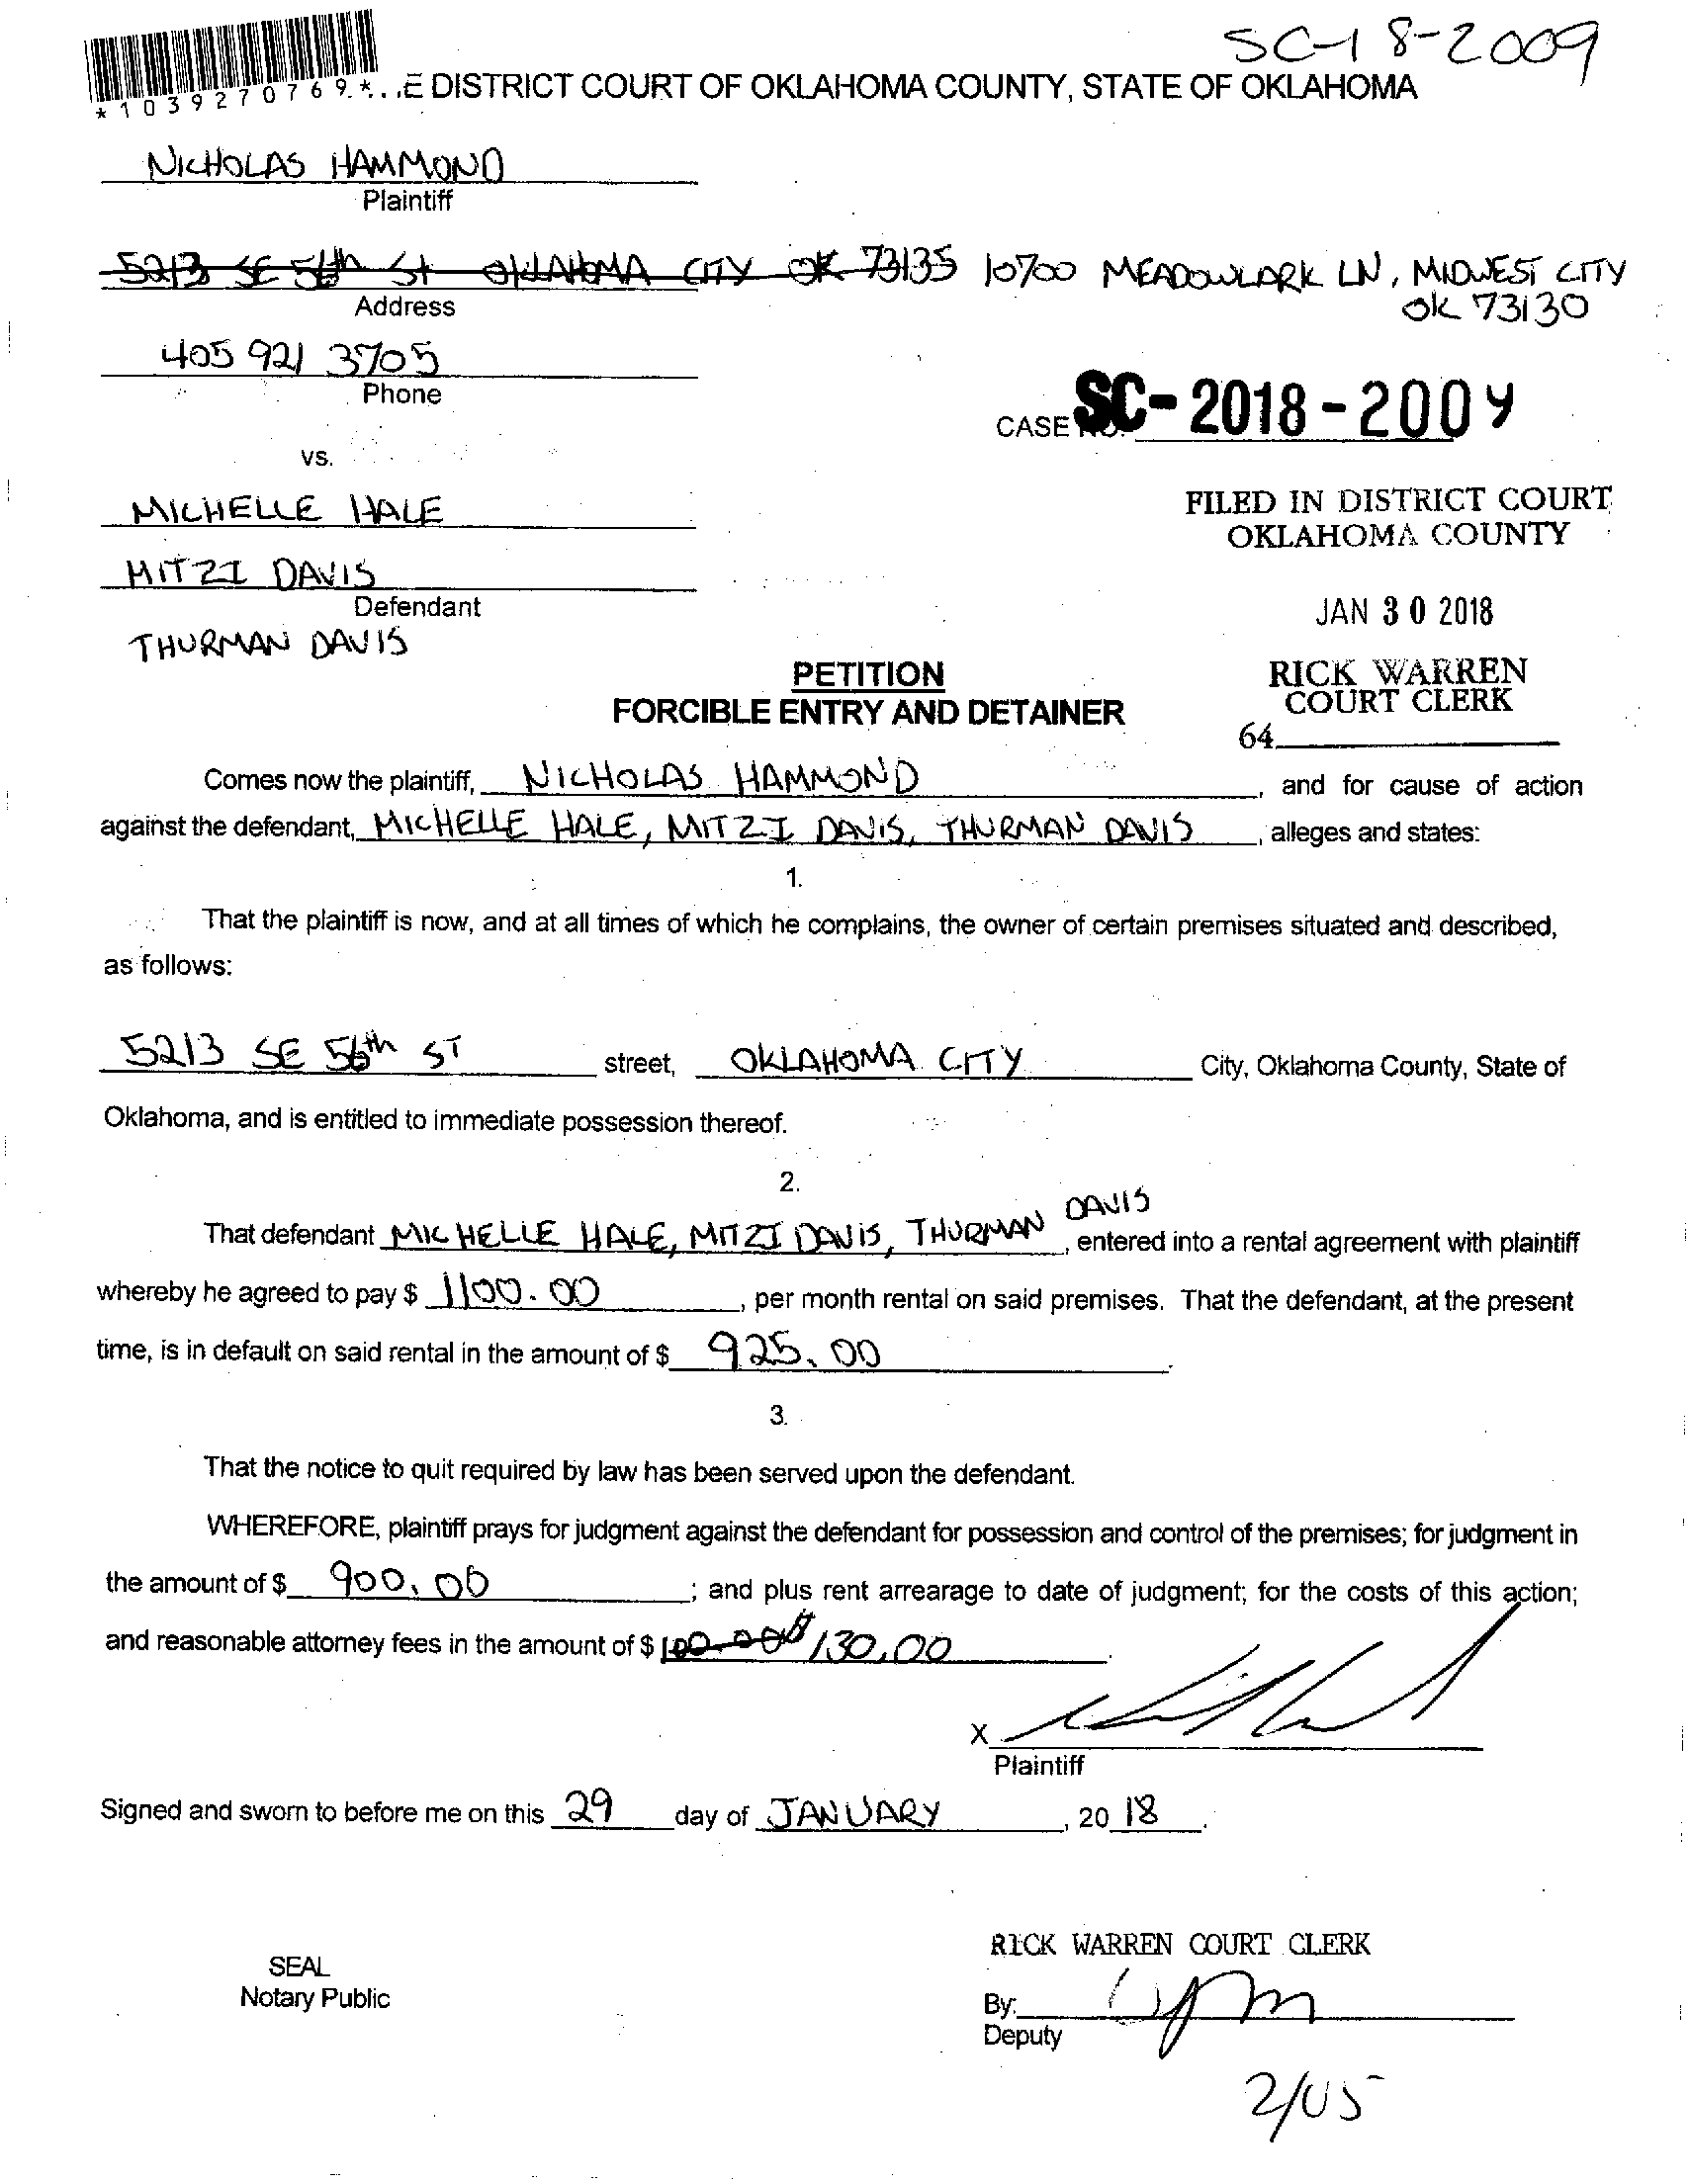 SC-18-2009
*1039270769*. .E DISTRICT COURT OF OKLAHOMA COUNTY, STATE OF OKLAHOMA
NICHOLAS HAMMOND
Plaintiff
5213 SE 56th St OKLAHOMA CITY OK 73135 10700 MEADOWLARK LN, MIDWEST CITY
OK 73130
Address
405 921 3705
Phone
CASE NO. SC-2018-2009
vs.
MICHELLE HALE
FILED IN DISTRICT COURT
OKLAHOMA COUNTY
MITZI DAVIS
Defendant
JAN 30 2018
THURMAN DAVIS
PETITION
RICK WARREN
COURT CLERK
FORCIBLE ENTRY AND DETAINER
64
Comes now the plaintiff, NICHOLAS HAMMOND, and for cause of action
against the defendant, MICHELLE HALE, MITZI DAVIS, THURMAN DAVIS, alleges and states:
1.
That the plaintiff is now, and at all times of which he complains, the owner of certain premises situated and described,
as follows:
5213 SE 56th ST street, OKLAHOMA CITY City, Oklahoma County, State of
Oklahoma, and is entitled to immediate possession thereof.
2.
That defendant MICHELLE HALE, MITZI DAVIS, THURMAN DAVIS, entered into a rental agreement with plaintiff
whereby he agreed to pay $ 1100.00, per month rental on said premises. That the defendant, at the present
time, is in default on said rental in the amount of $ 925.00.
3.
That the notice to quit required by law has been served upon the defendant.
WHEREFORE, plaintiff prays for judgment against the defendant for possession and control of the premises; for judgment in
the amount of $ 900.00; and plus rent arrearage to date of judgment; for the costs of this action;
and reasonable attorney fees in the amount of $ 100.00 130.00.
X
Plaintiff
Signed and sworn to before me on this 29 day of JANUARY, 20 18.
RICK WARREN COURT CLERK
SEAL
Notary Public
By:
Deputy